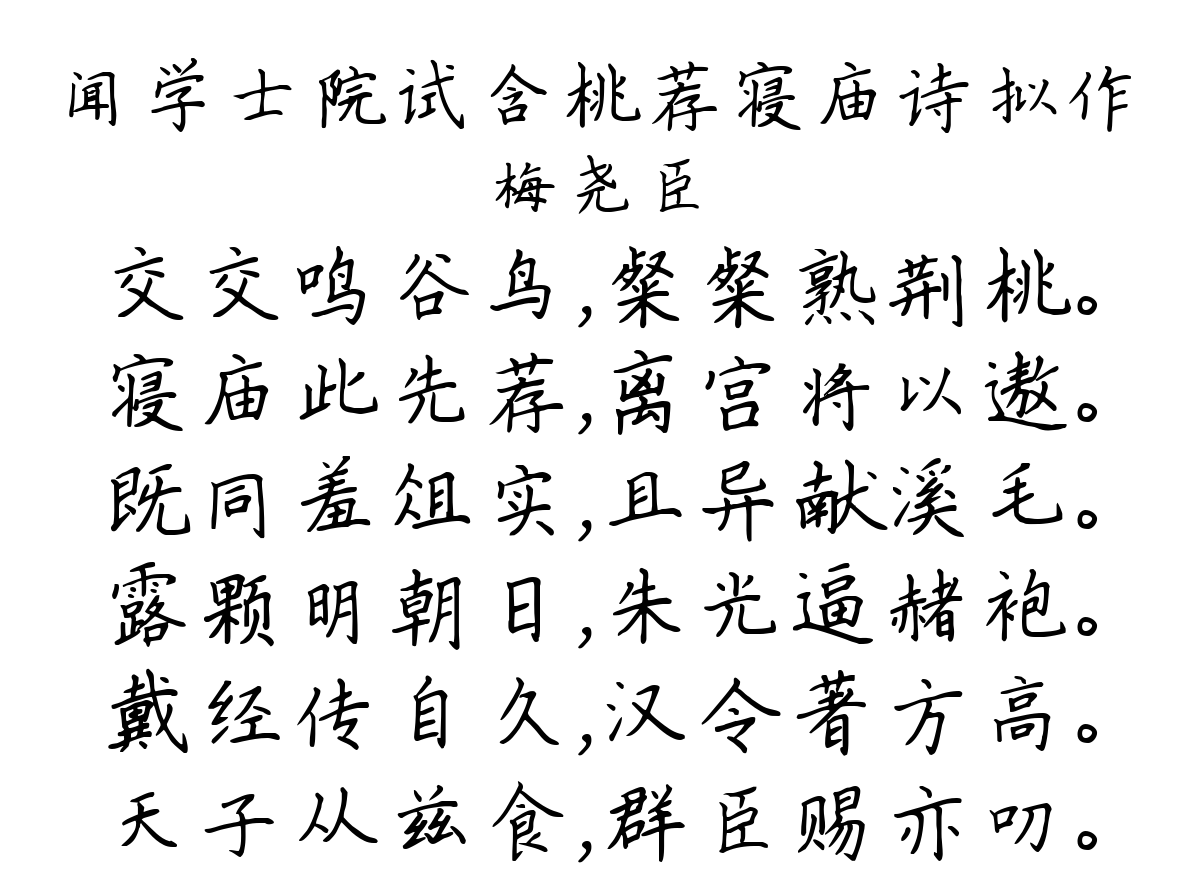 闻学士院试含桃荐寝庙诗拟作
梅尧臣
交交鸣谷鸟,粲粲熟荆桃。
寝庙此先荐,离宫将以遨。
既同羞俎实,且异献溪毛。
露颗明朝日,朱光逼赭袍。
戴经传自久,汉令著方高。
天子从兹食,群臣赐亦叨。